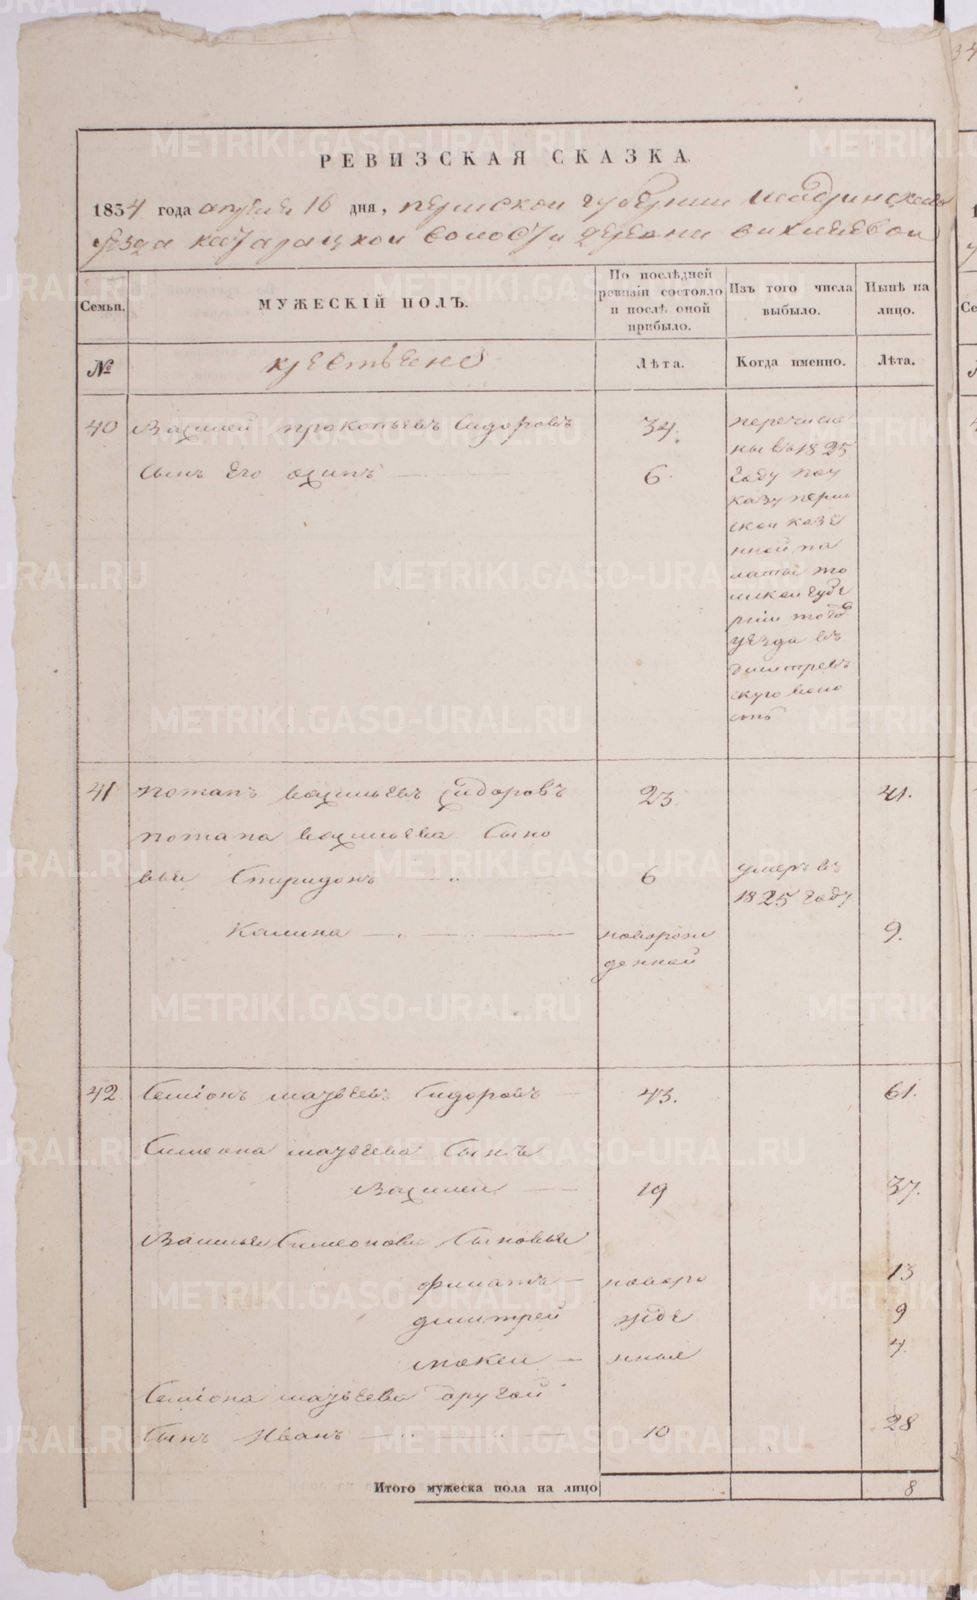 РЕВИЗСКАЯ СКАЗКА.
1834 года апреля 16 дня, пермской губернии Шадринскаго
уезда катарацкой волости деревни
Семьи. МУЖЕСКІЙ ПОЛЪ. По послѣдней ревизіи состояло и послѣ оной прибыло. Изъ того числа выбыло. Нынѣ на лицо.
№ крестьене Лѣта. Когда именно. Лѣта.
40 Василей прокопьевъ Сидоровъ 34. перечисле
ны въ 1825
Сынъ Его осипъ 6. году по у
казу перм
ской казе
нной па
латы то
мской губе
рнии того
уезда въ
дмитрев
скую воло
сть
41 потапъ васильевъ Сидоровъ 23. 41.
потапа васильева Сыно
вьи Спиридонъ 6 умеръ въ
1825 году
Калина новорож 9.
денной
42 Семіонъ матвеевъ Сидоровъ 43. 61.
Симеона матвеева Сынъ
Василей 19 37.
Васильи Симеонова Сыновьи
филатъ новоро 13
дмитрей жде 9
мокеи нные 4.
Семіона матвеева другой
Сынъ Иванъ 10 28
Итого мужеска пола на лицо 8
METRIKI.GASO-URAL.RU